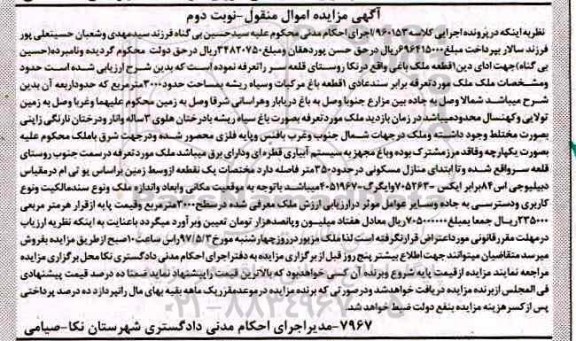 آگهی مزایده اموال منقول-نوبت دوم
نظر به اینکه در پرونده اجرایی کلاسه ۹۶۰۱۵۳/اجرای احکام مدنی محکوم علیه سیدحسین بی گناه فرزند سیدمهدی وشعبان حسینعلی پور
فرزند سالار بپرداخت مبلغ ۶۹۶۴۱۵۰۰۰ ریال در حق حسن پوردهقان ومبلغ ۳۴۸۲۰۷۵۰ ریال در حق دولت محکوم گردیده ونامبرده(حسین
بی گناه)جهت ادای دین ۱قطعه ملک باغی واقع درنکا روستای قلعه سر راتعرفه نموده است که بدین شرح ارزیابی شده است حدود
ومشخصات ملک ملک موردتعرفه برابر سندعادی ۱قطعه باغ مرکبات وسیاه ریشه بمساحت حدود ۳۰۰۰مترمربع که حدوداربعه آن بدین
شرح میباشد شمالا وصل به جاده بین مزارع جنوبا وصل به باغ دریابار وهراسانی شرقا وصل به زمین محکوم علیهما وغربا وصل به زمین
تولایی وکهنسال محدودمیباشد در زمان بازدید ملک موردتعرفه بصورت باغ سیاه ریشه بادرختان هلوی ۳ساله وانار ودرختان نارنگی ژاپنی
بصورت مختلط وجود داشته وملک درجهات شمال جنوب وغرب بافنس وپایه فلزی محصور شده ودرجهت شرق باملک محکوم علیه
بصورت یکپارچه وفاقد مرزمشترک بوده وباغ مجهز به سیستم آبیاری قطره ای ودارای برق میباشد ملک موردتعرفه درسمت جنوب روستای
قلعه سرواقع شده وتا ابتدای منازل مسکونی درحدود ۳۵۰متر فاصله دارد مختصات یک نقطعه ازوسط زمین براساس یو تی ام درمقیاس
دبلیوجی اس۸۴برابر ایکس ۷۰۵۲۶۳-وایگرگ-۴۰۵۱۹۶۷میباشد باتوجه به موقعیت مکانی وابعاد واندازه ملک ونوع سندمالکیت ونوع
کاربری ودسترسی به جاده وسایر عوامل موثر درارزیابی ارزش ملک معرفی شده در سطح۳۰۰۰مترمربع وقیمت پایه ازقرار هرمتر مربعی
۲۳۵۰۰۰ریال جمعا بمبلغ ۷۰۵۰۰۰۰۰۰ریال معادل هفتاد میلیون وپانصدهزار تومان تعیین وبرآورد میگردد باعنایت به اینکه نظریه ارزیاب
درمهلت مقررقانونی مورداعتراض قرارنگرفته است لذا ملک مزبور در روز چهارشنبه مورخ ۹۷/۵/۳راس ساعت ۱۰صبح ازطریق مزایده بفروش
میرسد متقاضیان میتوانند جهت اطلاع بیشتر پنج روز قبل از برگزاری مزایده به دفتراجرای احکام مدنی دادگستری نکا محل برگزاری مزایده
مراجعه نمایند مزایده ازقیمت پایه شروع وبرنده آن کسی خواهدبود که بالاترین قیمت راپیشنهاد نماید ضمنا ده درصد قیمت پیشنهادی
فی المجلس ازبرنده مزایده دریافت خواهدشد ودرصورتی که برنده مزایده در موعدمقرریک ماهه بقیه بهای مال رانپردازد ده درصد پرداختی
پس از کسر هزینه مزایده بنفع دولت ضبط خواهد شد.
۷۹۶۷-مدیراجرای احکام مدنی دادگستری شهرستان نکا-صیامی
۰۲۱-۸۸۳۴۹۶۷۰-۵